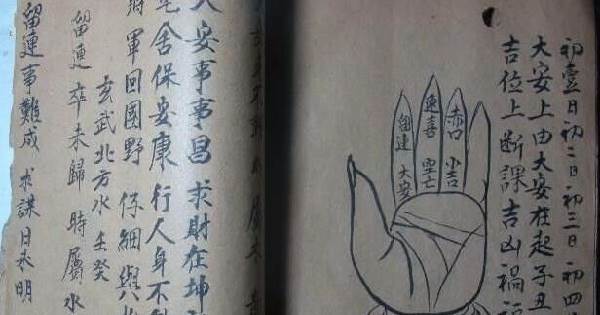 初壹日初二日初三日初四
大安上由大安在起子丑
吉位上断課吉凶禍
赤口 小吉
速喜 空亡
留連 大安
大安事事昌 求財在坤
宅舍保安康 行人身不
軍回園野 仔細與
玄武北方水壬癸
留連 卒未歸 時屬水
留連事難成 求謀日未明